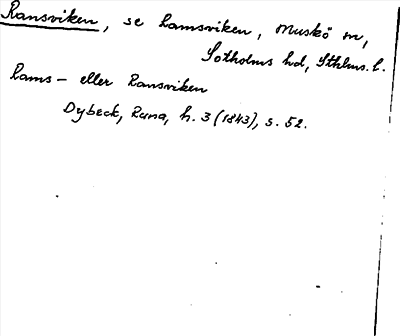 Ransviken, se Ramsviken, Muskö sn,
Sotholms hd, Sthlms. l.
Rams- eller Ransviken
Dybeck, Runa, h. 3 (1843), s. 52.